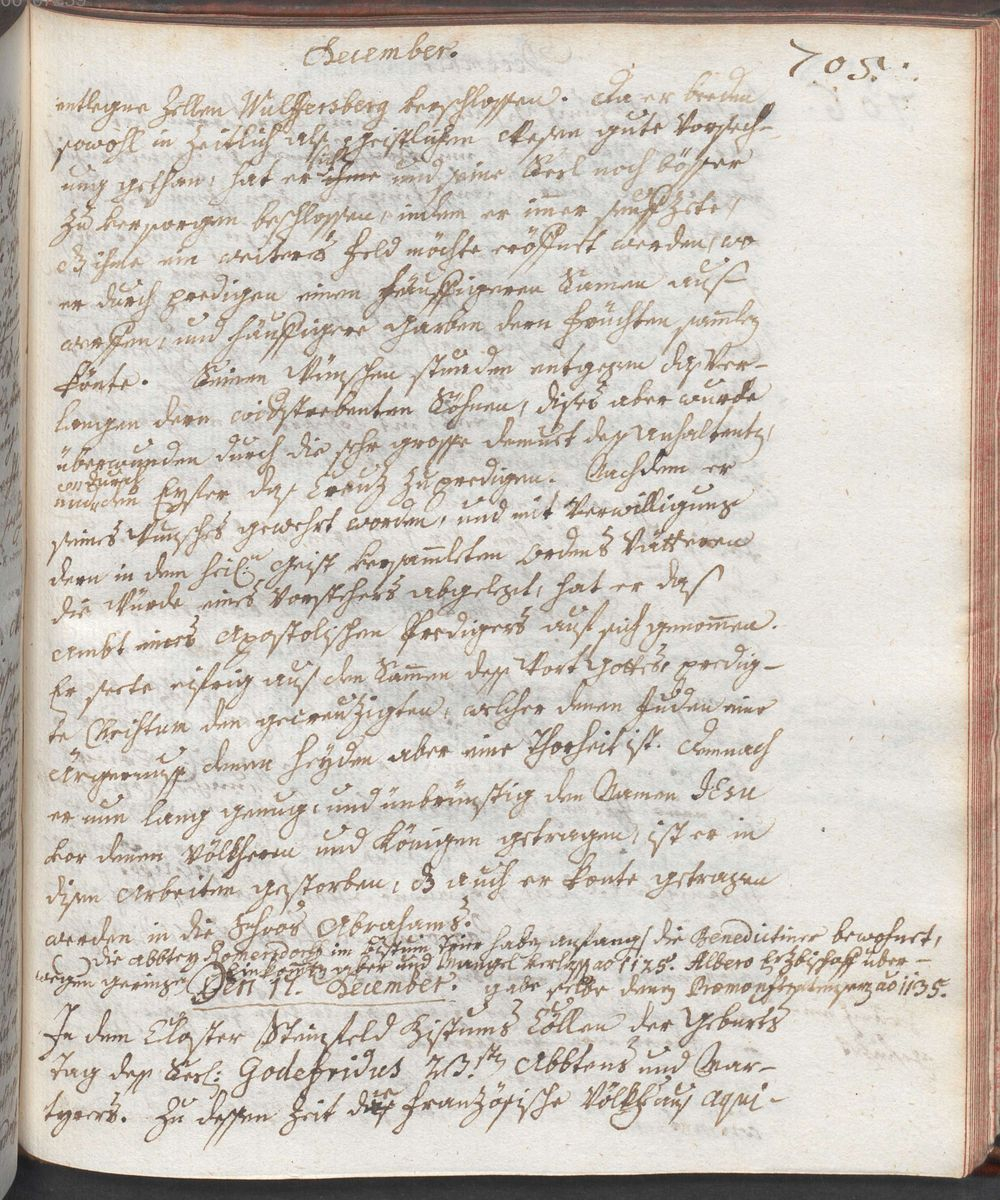 December.
705.
entlegne Zellen Wulffersberg verschlossen. Da er beeden
sowohl in Zeitlich als Geistlichen Wesen gute Vorseh-
ung gethan, hat er sich und seine Seel noch bösser
zu versorgen beschlossen, indem er imer seuffzete,
dz ihme ein weiters Feld möchte eröffnet werden, wo
er durch predigen einen häuffigeren Samen auß
werffen, und häuffigere Garben dern Früchten samlen
könte. Seinen Wünschen stunden entgegen daß Ver-
langen dern widstrebenten Söhnen, dises aber wurde
überwunden durch die sehr grosse demuet deß Anhaltenten,
wodurch
und den Eyffer daß Creutz zu predigen. Nachdem er
seines Wunsches gewehrt worden, und mit Verwilligung
dern in dem heil. Geist versammleten Ordens Vätteren
die Würde eines Vorstehers abgelegt, hat er daß
Ambt eines Apostolischen Predigers auf sich genommen.
Er seete eifrig auß den Sammen deß Wort Gottes, predig-
te Christum den gecreutzigten, welcher denen Juden eine
Ärgernuß denen Heyden aber eine Thorheit ist. Demnach
er nun lang genug, und inbrünstig den Namen JEsu
vor denen Völckheren und Königen getragen, ist er in
disen Arbeiten gestorben, dz auch er konte getragen
werden in die Schoos Abrahams.
Die Abbtey Romersdorff im Bistum Trier haben anfangs die Benedictiner bewohnet,
wegen geringen Einkonfften aber und Mangel verlassen ao 1125. Albero Ertzbischoff über-
gabe selbe denen Praemonstratensern ao 1135.
Den 17. December.
In dem Closter Steinfeld Bistums Cöllen der Geburts
tag deß Seel: Godefridus 23.sten Abbtens und Mar-
tyrers. Zu dessen Zeit die Französische Völckh aus Aqui-